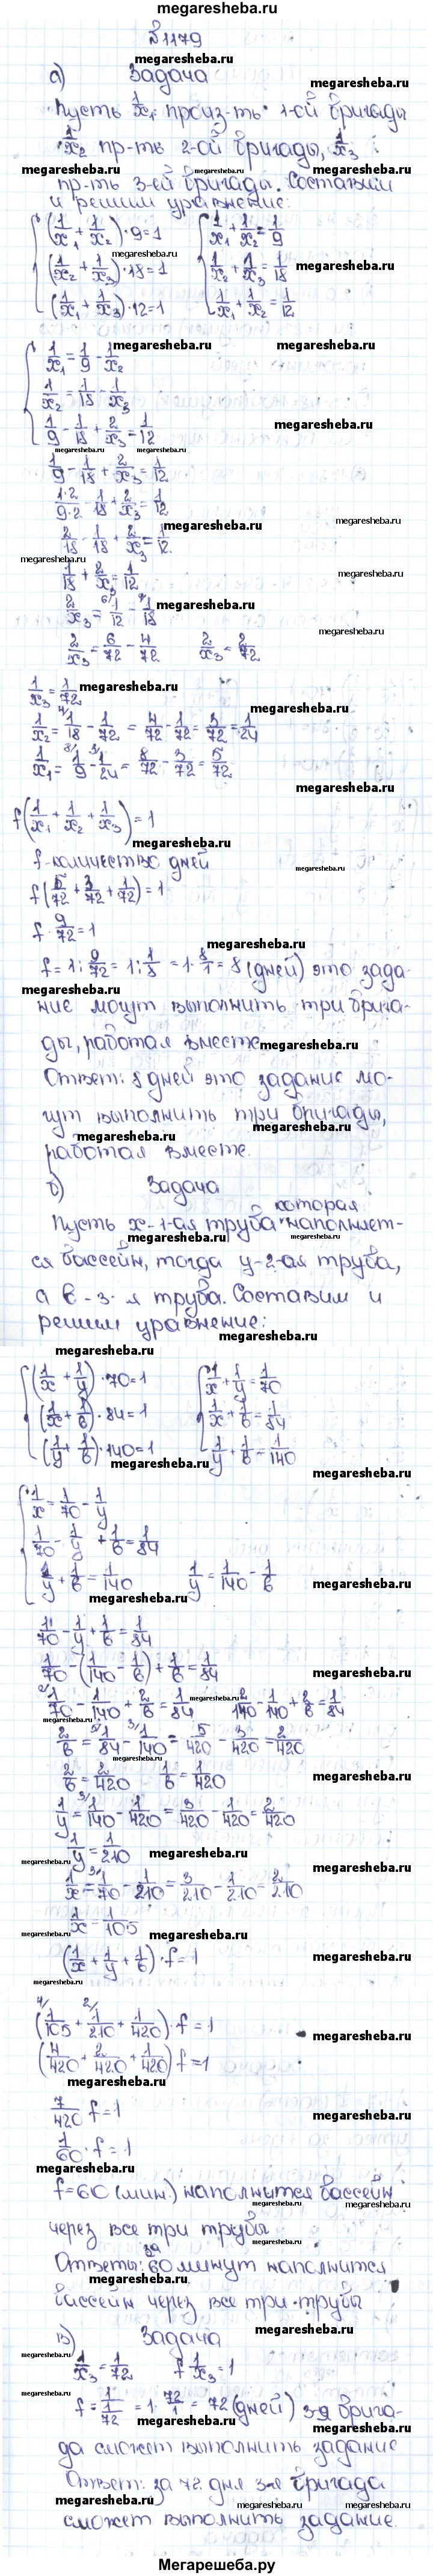 megaresheba.ru
№1179
megaresheba.ru
а) Задача
megaresheba.ru
Пусть 1/x₁ произ-ть 1-ой бригады
1/x₂ пр-ть 2-ой бригады, 1/x₃
megaresheba.ru
пр-ть 3-ей бригады. Составим
и решим уравнение:
(1/x₁ + 1/x₂)·9=1   1/x₁ + 1/x₂ = 1/9
(1/x₂ + 1/x₃)·18=1   1/x₂ + 1/x₃ = 1/18
(1/x₁ + 1/x₃)·12=1   1/x₁ + 1/x₂ = 1/12
megaresheba.ru
1/x₁ = 1/9 - 1/x₂
1/x₂ = 1/18 - 1/x₃
1/9 - 1/18 + 2/x₃ = 1/12
1/9 - 1/18 + 2/x₃ = 1/12
1·2/9·2 - 1/18 + 2/x₃ = 1/12
2/18 - 1/18 + 2/x₃ = 1/12
1/18 + 2/x₃ = 1/12
2/x₃ = 1/12 - 1/18
2/x₃ = 6/72 - 4/72   2/x₃ = 2/72
1/x₃ = 1/72
1/x₂ = 1/18 - 1/72 = 4/72 - 1/72 = 3/72 = 1/24
1/x₁ = 1/9 - 1/24 = 8/72 - 3/72 = 5/72
f(1/x₁ + 1/x₂ + 1/x₃) = 1
f-количество дней
f(5/72 + 3/72 + 1/72) = 1
f · 9/72 = 1
f = 1 : 9/72 = 1 : 1/8 = 1 · 8/1 = 8 (дней) это зада-
ние могут выполнить три брига-
ды, работая вместе
Ответ: 8 дней это задание мо-
гут выполнить три бригады,
работая вместе.
б) Задача
которая
Пусть x-1-ая труба наполняет-
ся бассейн, тогда y-2-ая труба,
а в-3-я труба. Составим и
решим уравнение:
(1/x + 1/y)·70=1   1/x + 1/y = 1/70
(1/x + 1/в)·84=1   1/x + 1/в = 1/84
(1/y + 1/в)·140=1   1/y + 1/в = 1/140
1/x = 1/70 - 1/y
1/70 - 1/y + 1/в = 1/84
1/y + 1/в = 1/140   1/y = 1/140 - 1/в
1/70 - 1/y + 1/в = 1/84
1/70 - (1/140 - 1/в) + 1/в = 1/84
1/70 - 1/140 + 2/в = 1/84   2/140 - 1/140 + 2/в = 1/84
2/в = 1/84 - 1/140 = 5/420 - 3/420 = 2/420
2/в = 2/420   1/в = 1/420
1/y = 1/140 - 1/420 = 3/420 - 1/420 = 2/420
1/y = 1/210
1/x = 1/70 - 1/210 = 3/210 - 1/210 = 2/210
1/x = 1/105
(1/x + 1/y + 1/в)·f = 1
(1/105 + 1/210 + 1/420)·f = 1
(4/420 + 2/420 + 1/420) f = 1
7/420 f = 1
1/60 · f = 1
f = 60 (мин.) наполнится бассейн
через все три трубы
Ответы: за 60 минут наполнится
бассейн через все три трубы
в) Задача
1/x₃ = 1/72   f 1/x₃ = 1
f = 1/(1/72) = 1 · 72/1 = 72 (дней) 3-я брига-
да сможет выполнить задание
Ответ: за 72 дня 3-я бригада
сможет выполнить задание.
Мегарешеба.ру